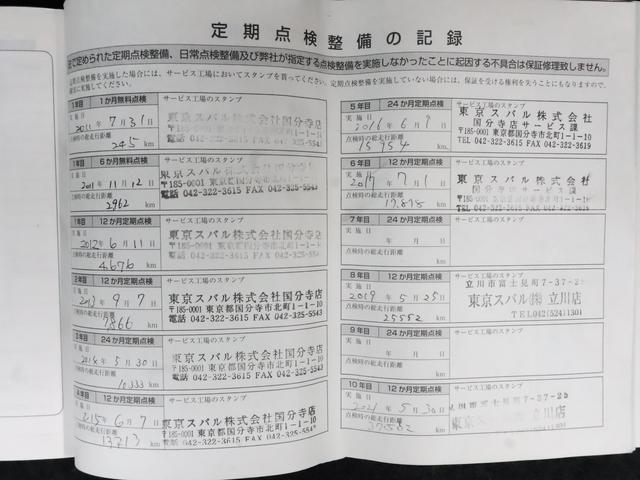 定期点検整備の記録
で定められた定期点検整備、日常点検整備及び弊社が指定する点検整備を実施しなかったことに起因する不具合は保証修理致しません。
点検整備を実施した場合には、サービス工場においてスタンプを貰ってください。定期点検整備を実施していない場合には、保証を受ける権利を失うことにもなりますので、
実施してください。
1年目 1か月無料点検 サービス工場のスタンプ
実施日
2011年 7月31日
点検時の総走行距離
245 km
東京スバル株式会社国分寺店
〒185-0001 東京都国分寺市北町1-1-10
電話 042-322-3615 FAX 042-325-5543
1年目 6か月無料点検 サービス工場のスタンプ
実施日
2011年 11月12日
点検時の総走行距離
2962 km
東京スバル株式会社国分寺店
〒185-0001 東京都国分寺市北町1-1-10
電話 042-322-3615 FAX 042-325-5543
1年目 12か月定期点検 サービス工場のスタンプ
実施日
2012年 6月11日
点検時の総走行距離
4,676 km
東京スバル株式会社国分寺店
〒185-0001 東京都国分寺市北町1-1-10
電話 042-322-3615 FAX 042-325-5543
2年目 12か月定期点検 サービス工場のスタンプ
実施日
2013年 9月7日
点検時の総走行距離
7866 km
東京スバル株式会社国分寺店
〒185-0001 東京都国分寺市北町1-1-10
電話 042-322-3615 FAX 042-325-5543
24か月定期点検 サービス工場のスタンプ
実施日
2014年 5月30日
点検時の総走行距離
10,333 km
東京スバル株式会社国分寺店
〒185-0001 東京都国分寺市北町1-1-10
電話 042-322-3615 FAX 042-325-5543
4年目 12か月定期点検 サービス工場のスタンプ
実施日
2015年 6月7日
点検時の総走行距離
13713 km
東京スバル株式会社国分寺店
〒185-0001 東京都国分寺市北町1-1-10
電話 042-322-3615 FAX 042-325-5543
5年目 24か月定期点検 サービス工場のスタンプ
実施日
2016年 6月
点検時の総走行距離
15,954 km
東京スバル株式会社
国分寺店サービス課
〒185-0001 東京都国分寺市北町1-1-10
TEL 042-322-3615 FAX 042-332-3619
6年目 12か月定期点検 サービス工場のスタンプ
実施日
2017年 7月1日
点検時の総走行距離
km
東京スバル株式会社
国分寺店サービス課
7年目 24か月定期点検 サービス工場のスタンプ
実施日
年 月 日
点検時の総走行距離
km
8年目 12か月定期点検 サービス工場のスタンプ
実施日
2019年 5月25日
点検時の総走行距離
25552 km
立川市富士見町7-37-2
東京スバル㈱ 立川店
TEL042(524)1301
9年目 24か月定期点検 サービス工場のスタンプ
実施日
年 月 日
点検時の総走行距離
km
10年目 12か月定期点検 サービス工場のスタンプ
実施日
2021年 5月30日
点検時の総走行距離
km
立川店